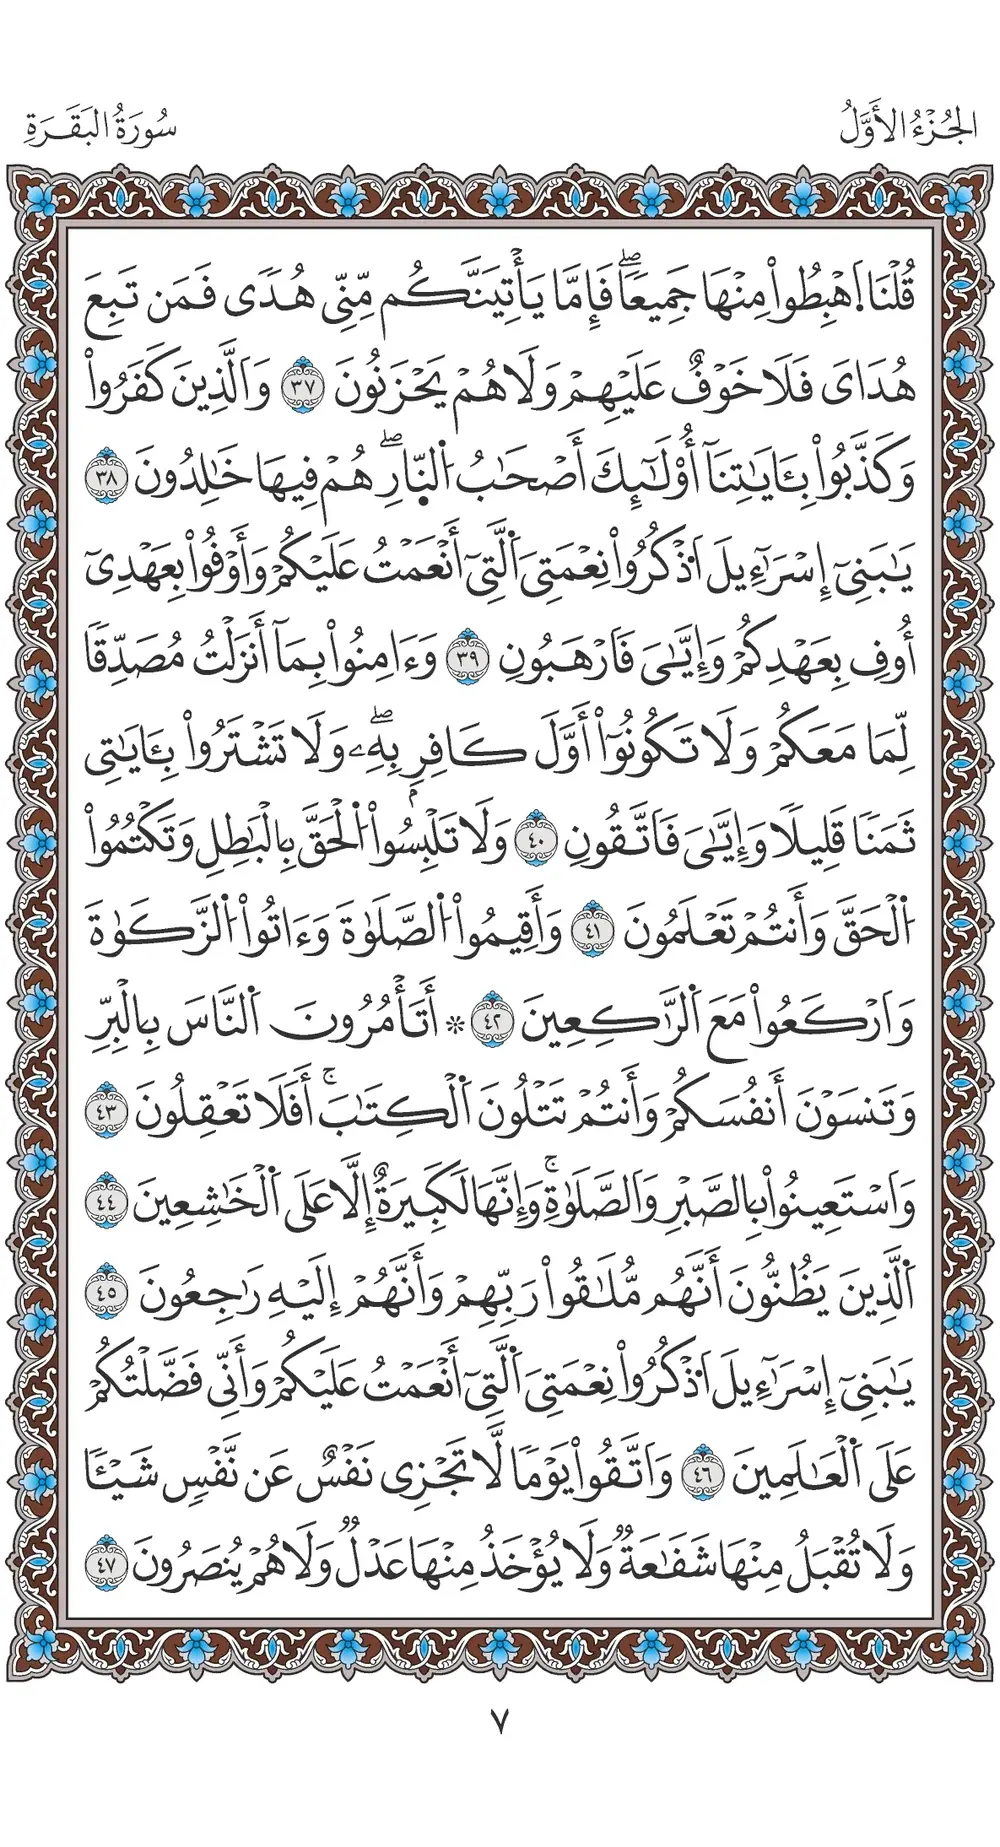 الجُزْءُ الأَوَّلُ
سُورَةُ البَقَرَةِ
قُلْنَا اَهْبِطُواْ مِنْهَا جَمِيعاٗۖ فَإِمَّا يَأْتِيَنَّكُم مِّنِّے هُدٗى فَمَن تَبِعَ
هُدَايَ فَلَا خَوْفٌ عَلَيْهِمْ وَلَا هُمْ يَحْزَنُونَ ٣٧ وَالَّذِينَ كَفَرُواْ
وَكَذَّبُواْ بِـَٔايَٰتِنَآ أُوْلَٰٓئِكَ أَصْحَٰبُ اُ۬لنّ۪ارِۖ هُمْ فِيهَا خَٰلِدُونَ ٣٨
يَٰبَنِےٓ إِسْرَآءِيلَ اَ۟ذْكُرُواْ نِعْمَتِيَ اَ۬لَّتِےٓ أَنْعَمْتُ عَلَيْكُمْ وَأَوْفُواْ بِعَهْدِےٓ
أُوفِ بِعَهْدِكُمْ وَإِيَّٰيَ فَارْهَبُونِ ٣٩ وَءَامِنُواْ بِمَآ أَنزَلْتُ مُصَدِّقٗا
لِّمَا مَعَكُمْ وَلَا تَكُونُوٓاْ أَوَّلَ كَافِرِۢ بِهِۦۖ وَلَا تَشْتَرُواْ بِـَٔايَٰتِے
ثَمَنٗا قَلِيلٗا وَإِيَّٰيَ فَاتَّقُونِ ٤٠ وَلَا تَلْبِسُواْ اُ۬لْحَقَّ بِالْبَٰطِلِ وَتَكْتُمُواْ
اُ۬لْحَقَّ وَأَنتُمْ تَعْلَمُونَ ٤١ وَأَقِيمُواْ اُ۬لصَّلَوٰةَ وَءَاتُواْ اُ۬لزَّكَوٰةَ
وَارْكَعُواْ مَعَ اَ۬لرَّٰكِعِينَ ٤٢ ۞ أَتَأْمُرُونَ اَ۬لنَّاسَ بِالْبِرِّ
وَتَنسَوْنَ أَنفُسَكُمْ وَأَنتُمْ تَتْلُونَ اَ۬لْكِتَٰبَۚ أَفَلَا تَعْقِلُونَ ٤٣
وَاسْتَعِينُواْ بِالصَّبْرِ وَالصَّلَوٰةِۚ وَإِنَّهَا لَكَبِيرَةٌ إِلَّا عَلَى اَ۬لْخَٰشِعِينَ ٤٤
اَ۬لَّذِينَ يَظُنُّونَ أَنَّهُم مُّلَٰقُواْ رَبِّهِمْ وَأَنَّهُمْ إِلَيْهِ رَٰجِعُونَ ٤٥
يَٰبَنِےٓ إِسْرَآءِيلَ اَ۟ذْكُرُواْ نِعْمَتِيَ اَ۬لَّتِےٓ أَنْعَمْتُ عَلَيْكُمْ وَأَنِّے فَضَّلْتُكُمْ
عَلَى اَ۬لْعَٰلَمِينَ ٤٦ وَاتَّقُواْ يَوْمٗا لَّا تَجْزِے نَفْسٌ عَن نَّفْسٖ شَيْـٔٗا
وَلَا تُقْبَلُ مِنْهَا شَفَٰعَةٞ وَلَا يُؤْخَذُ مِنْهَا عَدْلٞ وَلَا هُمْ يُنصَرُونَ ٤٧
٧